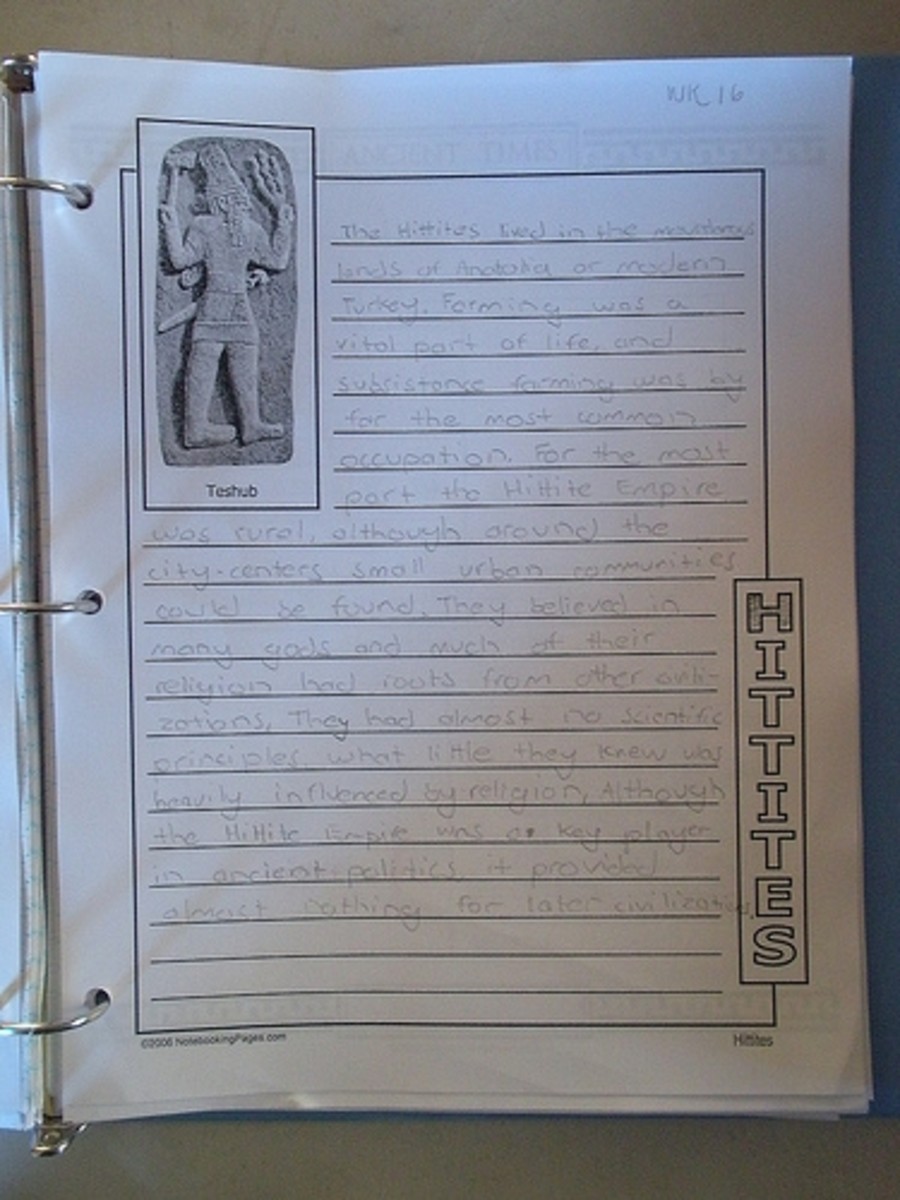 WK 16
ANCIENT TIMES
The Hittites lived in the mountainous
lands of Anatolia or modern
Turkey. Farming was a
vital part of life, and
subsistance farming was by
far the most common
occupation. For the most
part the Hittite Empire
was rural, although around the
city-centers small urban communities
could be found. They believed in
many gods and much of their
religion had roots from other civili-
zations. They had almost no scientific
principles, what little they knew was
heavily influenced by religion. Although
the Hittite Empire was a key player
in ancient politics, it provided
almost nothing for later civilizations.
Teshub
HITTITES
©2006 NotebookingPages.com
Hittites